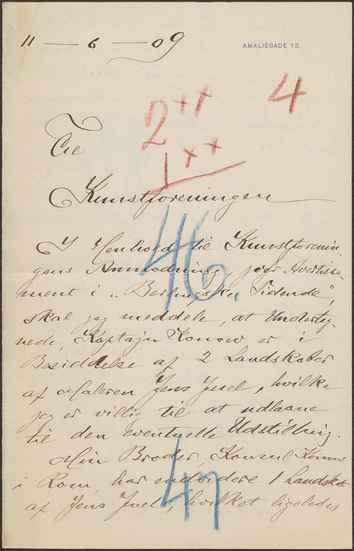 11 — 6 — 09
AMALIEGADE 12.
2 ×× 4
1 ××
Til
Kunstforeningen
46
I Henhold til Kunstforenin
gens Anmodning, pr Avertisse
ment i „Berlingske Tidende",
skal jeg meddele, at Underteg
nede, Kaptajn Konow, er i
Besiddelse af 2 Landskaber
af Maleren Jens Juel, hvilke
jeg er villig til at udlaane
til den eventuelle Udstilling.
Min Broder, Konsul Konow
i Rom, har endvidere 1 Landskab
af Jens Juel, hvilket ligeledes
47